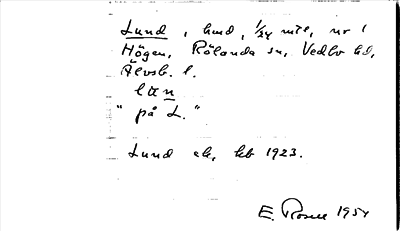 Lund, hmd, 1/24 mtl, nr 1
Högen, Rölanda sn, Vedbo hd,
Älvsb. l.
lɯn
"på L."
Lund ek, kb 1923.
E. Rosell 1954